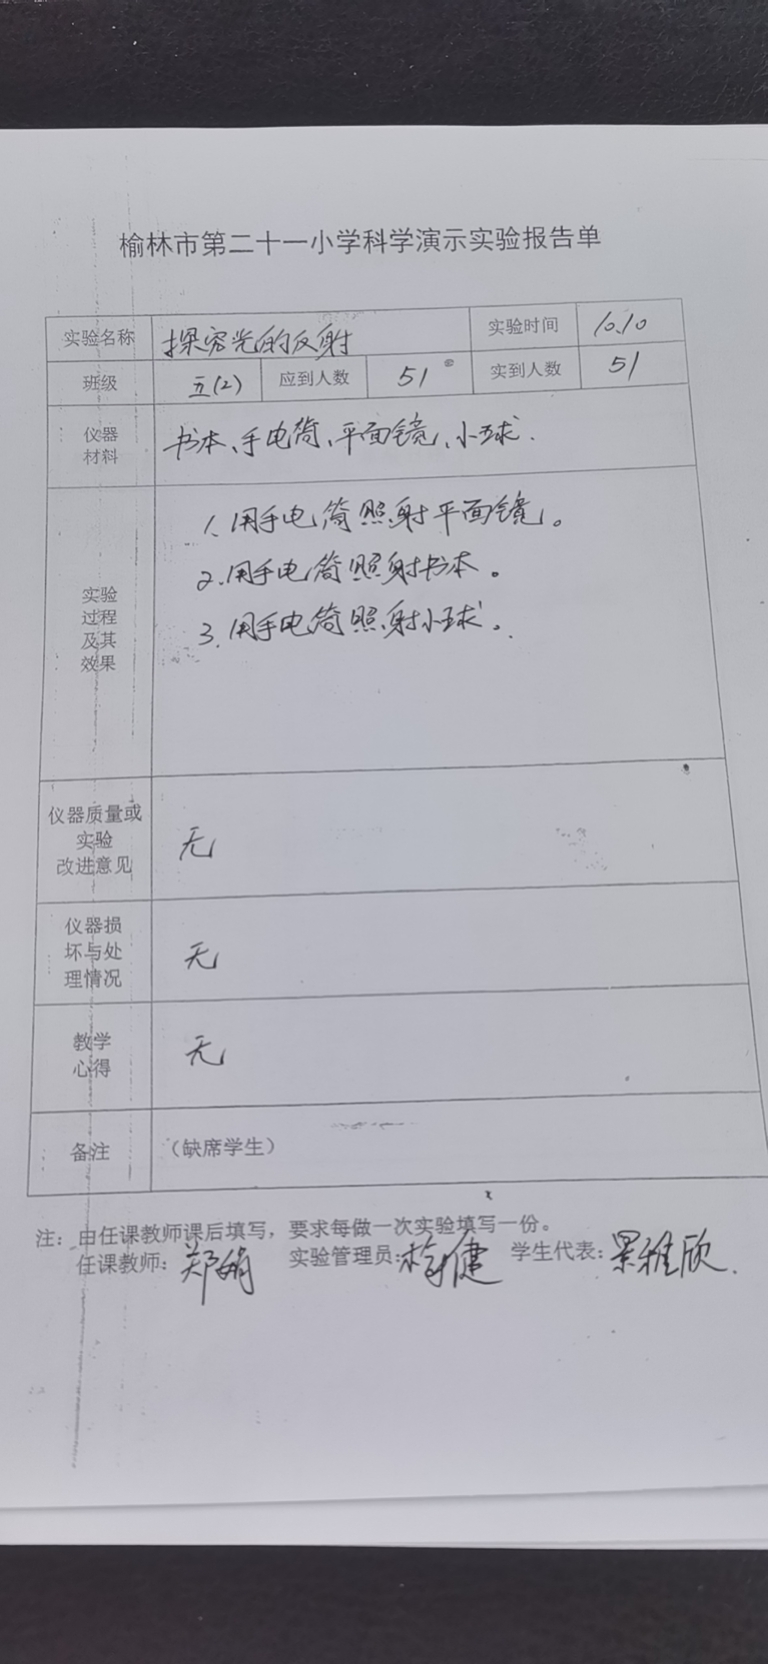 榆林市第二十一小学科学演示实验报告单
实验名称 探究光的反射 实验时间 10.10
班级 五(2) 应到人数 51 实到人数 51
仪器
材料
书本、手电筒、平面镜、小球.
实验
过程
及其
效果
1. 用手电筒照射平面镜。
2. 用手电筒照射书本。
3. 用手电筒照射小球。
仪器质量或
实验
改进意见
无
仪器损
坏与处
理情况
无
教学
心得
无
备注 (缺席学生)
注：由任课教师课后填写，要求每做一次实验填写一份。
任课教师：郑娟 实验管理员： 学生代表：景雅欣.